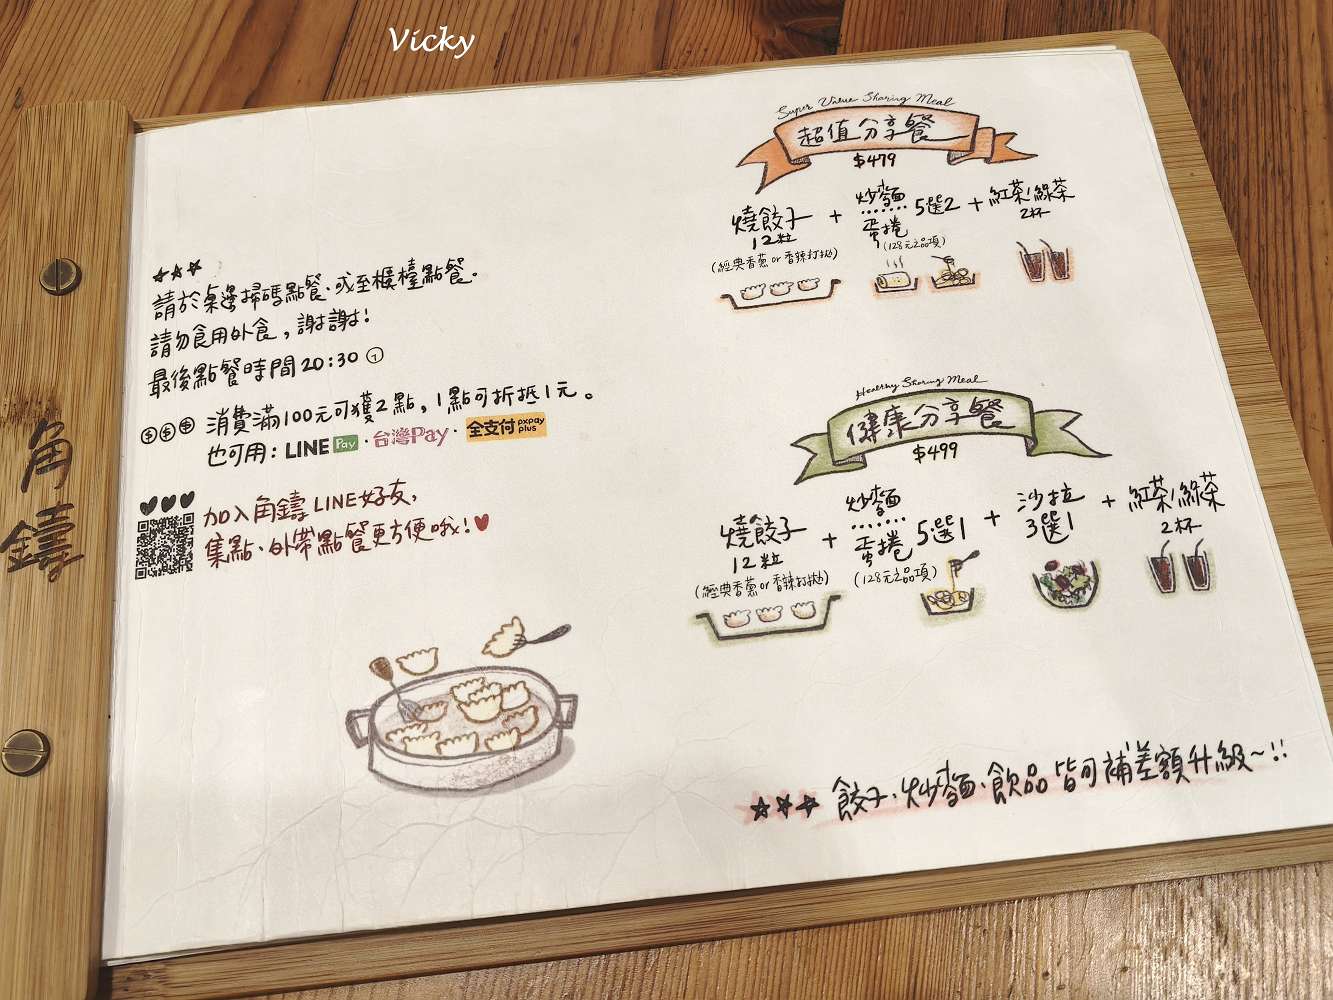 Vicky
角鑄
★★★
請於桌邊掃碼點餐、或至櫃檯點餐。
請勿食用外食,謝謝!
最後點餐時間20:30
$$$ 消費滿100元可獲2點,1點可折抵1元。
也可用:LINE Pay · 台灣Pay · 全支付 pxpay plus
加入角鑄LINE好友,
集點、外帶點餐更方便哦!
Super Value Sharing Meal
超值分享餐
$479
燒餃子 12粒 (經典香蔥 or 香辣打拋)
+
炒麵 蛋捲 5選2 (128元之品項)
+
紅茶/綠茶 2杯
Healthy Sharing Meal
健康分享餐
$499
燒餃子 12粒 (經典香蔥 or 香辣打拋)
+
炒麵 蛋捲 5選1 (128元之品項)
+
沙拉 3選1
+
紅茶/綠茶 2杯
★★★ 餃子、炒麵、飲品皆可補差額升級~!!